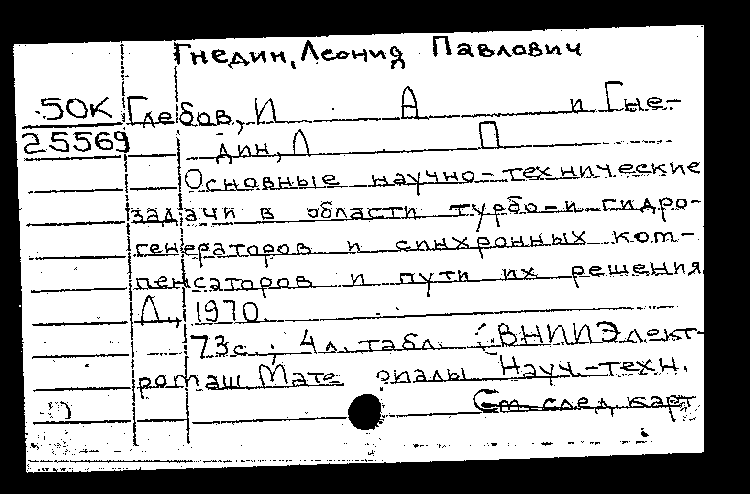 Гнедин, Леонид Павлович
50К Глебов, И А и Гне-
25569 дин, Л П
Основные научно-технические
задачи в области турбо- и гидро-
генераторов и синхронных ком-
пенсаторов и пути их решения
Л., 1970.
73с.; 4л. табл. (ВНИИЭлект-
ромаш Мате риалы Науч.-техн.
См след. карт